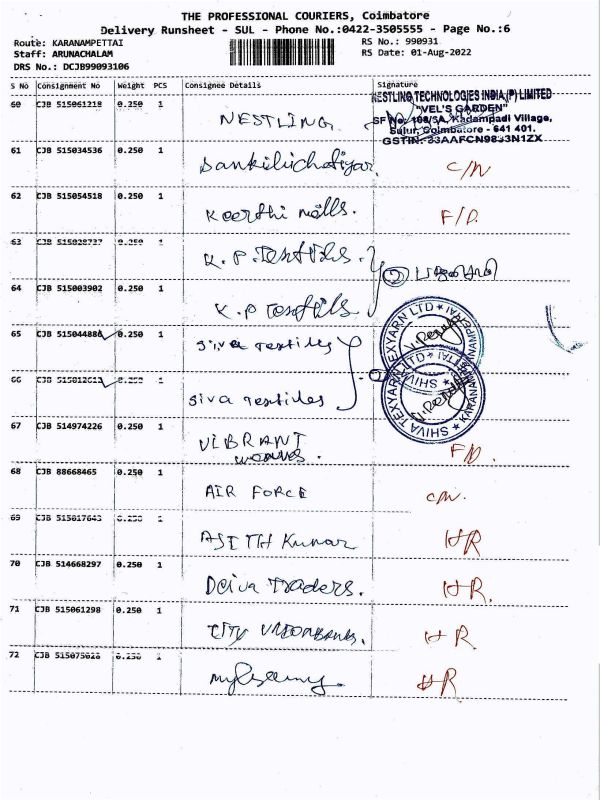 THE PROFESSIONAL COURIERS, Coimbatore
Delivery Runsheet - SUL - Phone No.:0422-3505555 - Page No.:6
Route: KARANAMPETTAI RS No.: 990931
Staff: ARUNACHALAM RS Date: 01-Aug-2022
DRS No.: DCJB99093106
S No Consignment No Weight PCS Consignee Details Signature
60 CJB 515061218 0.250 1 NESTLING
NESTLING TECHNOLOGIES INDIA (P) LIMITED
"VEL'S GARDEN"
SF No. 108/3A, Kadampadi Village,
Sulur, Coimbatore - 641 401.
GSTIN: 33AAFCN9833N1ZX
61 CJB 515034536 0.250 1 C/N
62 CJB 515054518 0.250 1 Keerthi mills. F/D.
63 CJB 515028727 0.250 1 K.P. Textiles.
64 CJB 515003902 0.250 1 K.P Textiles
65 CJB 515044886 0.250 1 Siva Textiles
SHIVA TEXYARN LTD KARANAMPETTAI
66 0.250 1 Siva Textiles
SHIVA TEXYARN LTD KARANAMPETTAI
67 CJB 514974226 0.250 1 VIBRANT F/D.
68 CJB 88668465 0.250 1 AIR FORCE C/N.
69 CJB 515017643 0.250 1 AJITH Kumar HR
70 CJB 514668297 0.250 1 Deiva Traders. HR.
71 CJB 515061298 0.250 1 CITY UNION BANK. HR.
72 0.250 1 HR